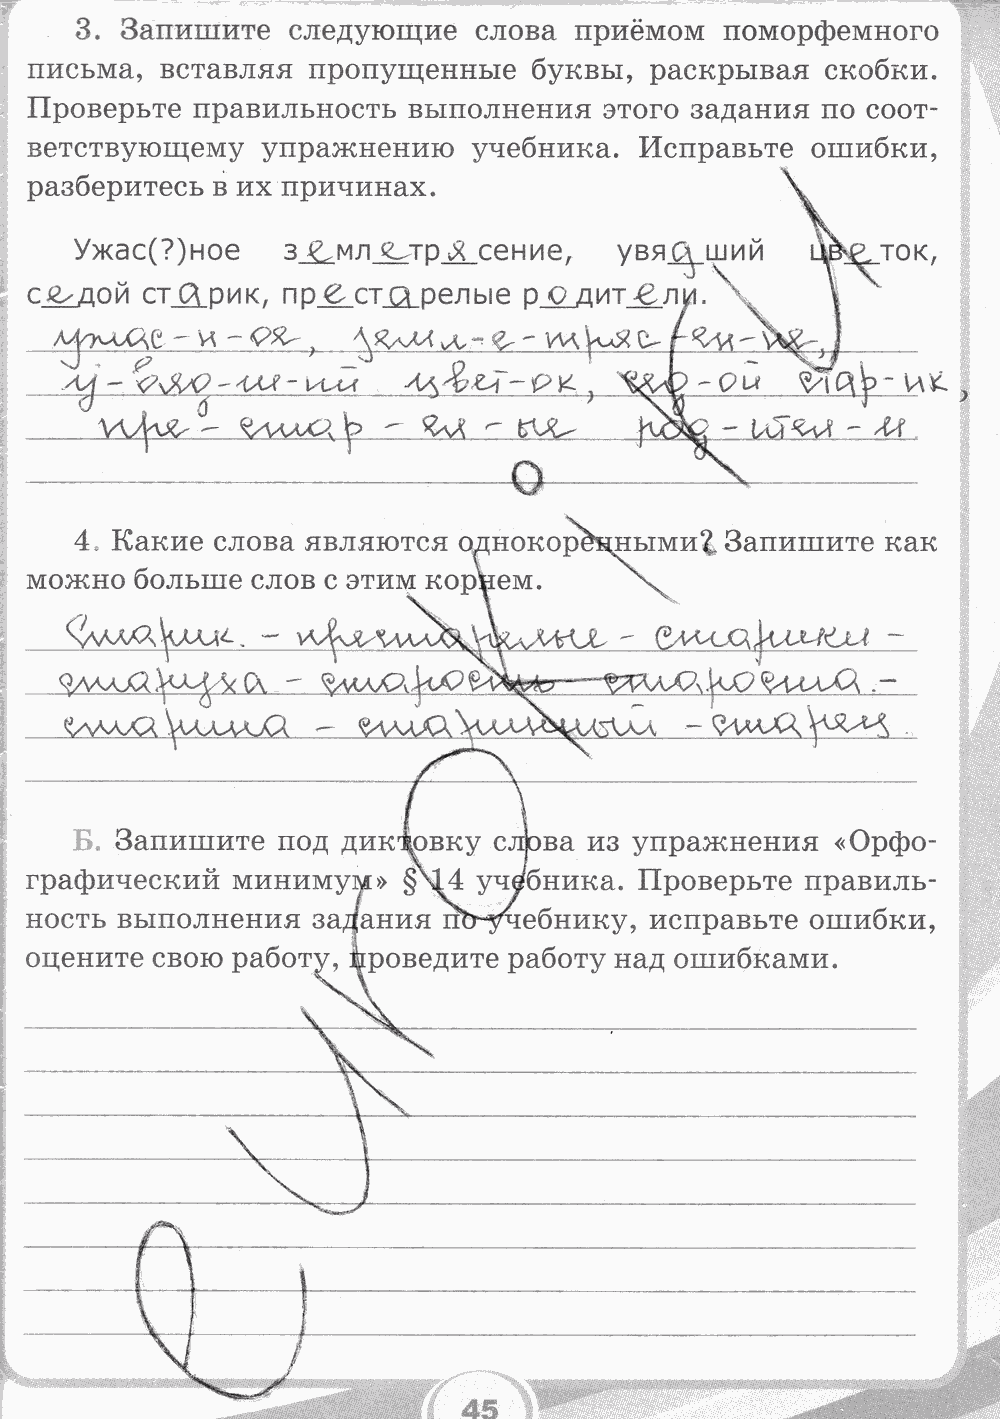 3. Запишите следующие слова приёмом поморфемного
письма, вставляя пропущенные буквы, раскрывая скобки.
Проверьте правильность выполнения этого задания по соот-
ветствующему упражнению учебника. Исправьте ошибки,
разберитесь в их причинах.
Ужас(?)ное землетрясение, увядший цветок,
седой старик, престарелые родители.
ужас-н-ое, земл-е-тряс-ен-ие,
у-вяд-ш-ий цвет-ок, сед-ой стар-ик,
пре-стар-ел-ые род-ител-и
4. Какие слова являются однокоренными? Запишите как
можно больше слов с этим корнем.
Старик. - престарелые - старики -
старуха - старость староста.-
старина - старинный - старец.
Б. Запишите под диктовку слова из упражнения «Орфо-
графический минимум» § 14 учебника. Проверьте правиль-
ность выполнения задания по учебнику, исправьте ошибки,
оцените свою работу, проведите работу над ошибками.
45